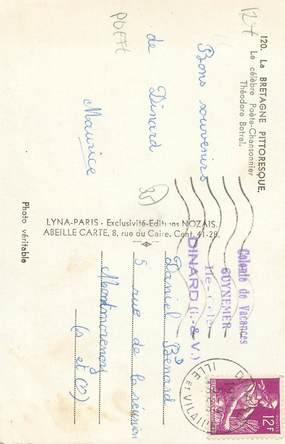 120. La BRETAGNE PITTORESQUE.
Le célèbre Poète-Chansonnier
Théodore Botrel.
POETE
12F
Bons souvenirs
de Dinard
Maurice
35
LYNA-PARIS - Exclusivité-Editions NOZAIS.
ABEILLE CARTE, 8, rue du Caire. Cent. 41-28.
Photo véritable
Colonie de Vacances
GUYNEMER
DINARD (I. & V.)
Daniel Bénard
5 rue de la réunion
Montmorency
(S et O)
ILLE et VILAINE
12F